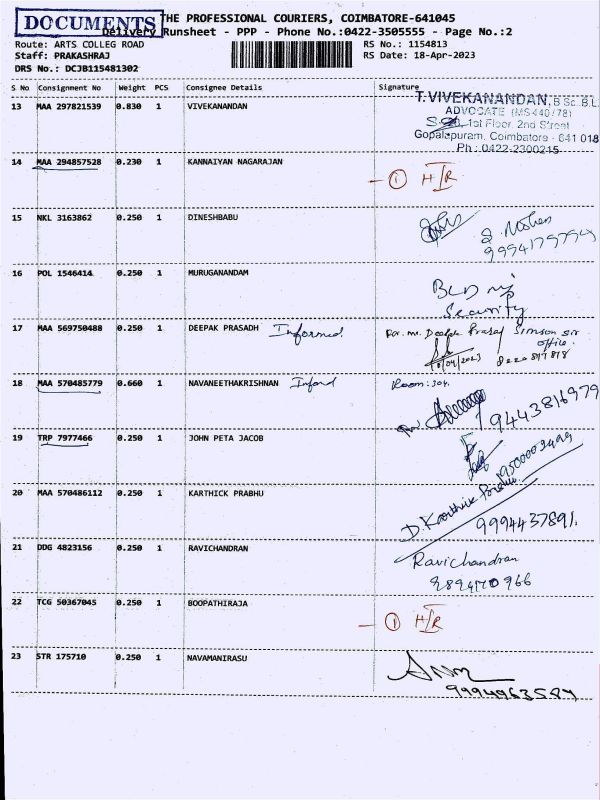 DOCUMENTS
THE PROFESSIONAL COURIERS, COIMBATORE-641045
Delivery Runsheet - PPP - Phone No.:0422-3505555 - Page No.:2
Route: ARTS COLLEG ROAD RS No.: 1154813
Staff: PRAKASHRAJ RS Date: 18-Apr-2023
DRS No.: DCJB115481302
S No Consignment No Weight PCS Consignee Details Signature
13 MAA 297821539 0.830 1 VIVEKANANDAN
T. VIVEKANANDAN, B.Sc.,B.L.
ADVOCATE (MS 440/78)
1st Floor, 2nd Street
Gopalapuram, Coimbatore - 641 018
Ph : 0422-2300215
14 MAA 294857528 0.230 1 KANNAIYAN NAGARAJAN
- 1 H/R
15 NKL 3163862 0.250 1 DINESHBABU
16 POL 1546414 0.250 1 MURUGANANDAM
Security
17 MAA 569750488 0.250 1 DEEPAK PRASADH Informed For. Mr. Deepak Prasad Simson sir
office.
18/04/2023
18 MAA 570485779 0.660 1 NAVANEETHAKRISHNAN Room: 304.
9443816979
19 TRP 7977466 0.250 1 JOHN PETA JACOB
20 MAA 570486112 0.250 1 KARTHICK PRABHU
D. Karthick Prabhu
9994437891.
21 DDG 4823156 0.250 1 RAVICHANDRAN
Ravichandran
22 TCG 50367045 0.250 1 BOOPATHIRAJA
- 1 H/R
23 STR 175710 0.250 1 NAVAMANIRASU